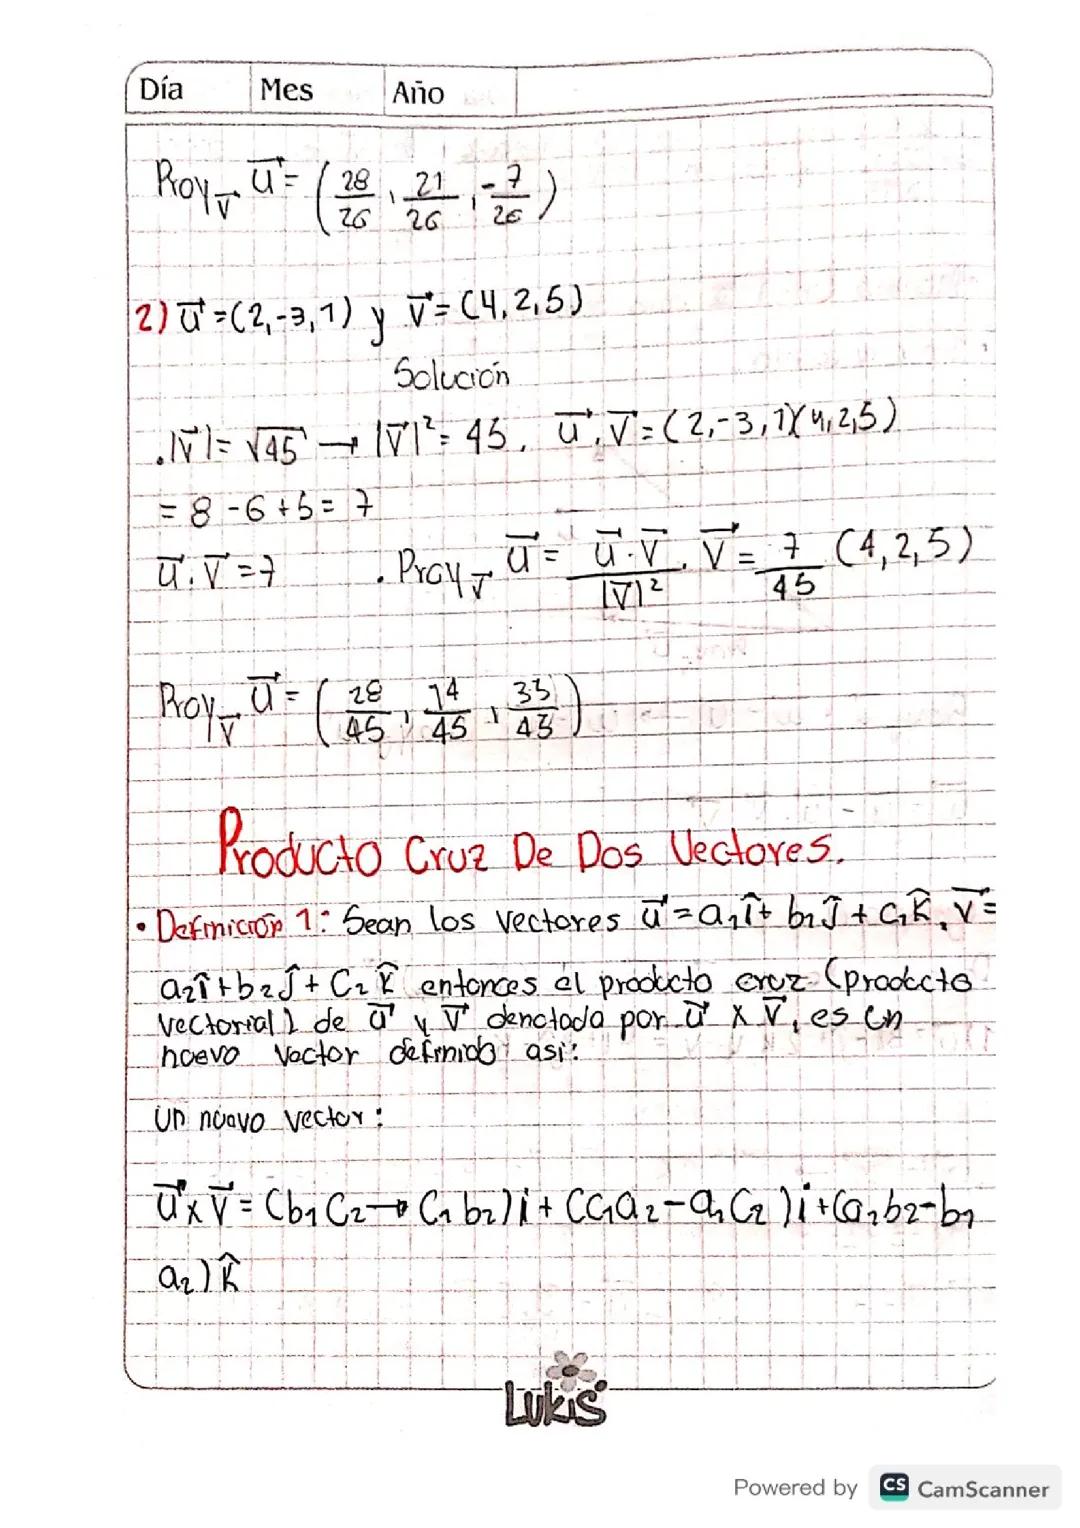 Día Mes Año
Proy_v⃗ u⃗ = (28/26, 21/26, -7/26)
2) u⃗ = (2,-3,1) y v⃗ = (4,2,5)
Solución
. |v⃗| = √45 → |v⃗|² = 45. u⃗.v⃗ = (2,-3,1)(4,2,5)
= 8 - 6 + 5 = 7
u⃗.v⃗ = 7 . Proy_v⃗ u⃗ = u⃗.v⃗/|v⃗|² . v⃗ = 7/45 (4,2,5)
Proy_v⃗ u⃗ = (28/45, 14/45, 35/45)
Producto Cruz De Dos Vectores.
• Definición 1: Sean los vectores u⃗ = a₁î + b₁ĵ + c₁k̂, v⃗ =
a₂î + b₂ĵ + c₂k̂ entonces el producto cruz (producto
vectorial) de u⃗ y v⃗ denotado por u⃗ x v⃗, es un
nuevo vector definido así:
Un nuevo vector:
u⃗ x v⃗ = (b₁c₂ → c₁b₂)i + (c₁a₂ - a₁c₂)i + (a₁b₂ - b₁
a₂)k̂
Lukis
Powered by CS CamScanner